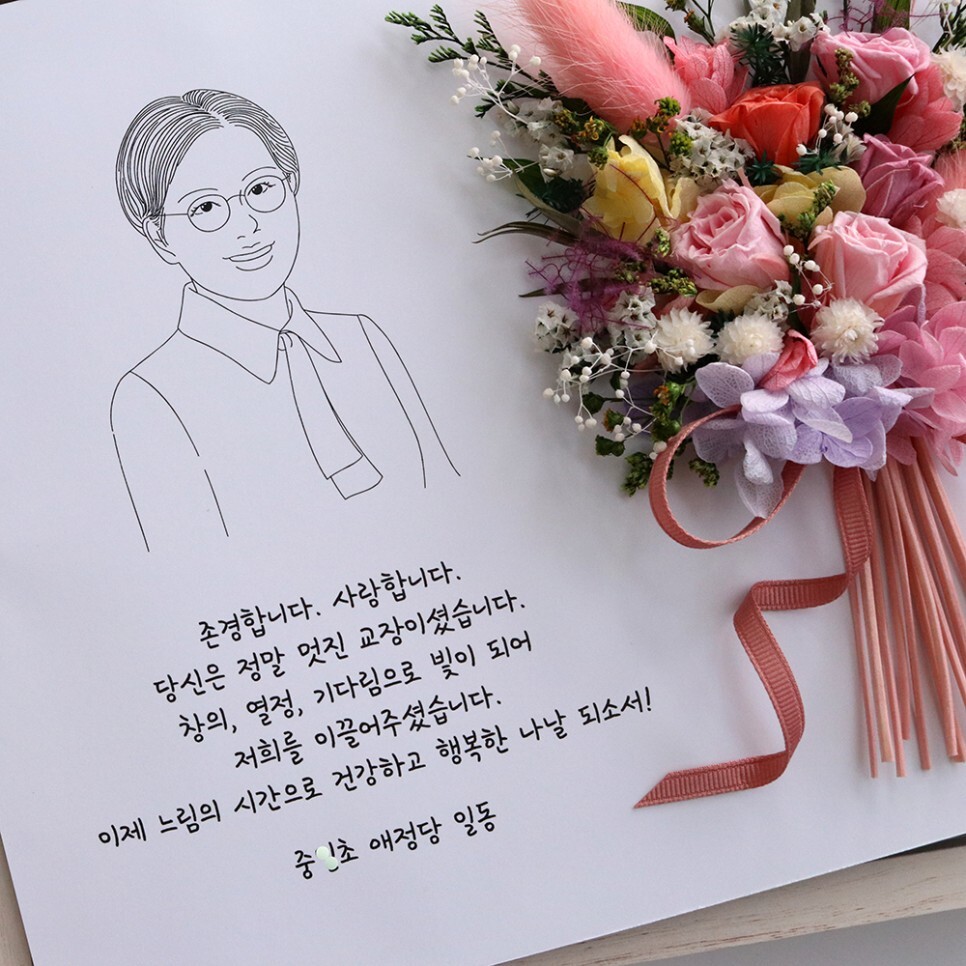 존경합니다. 사랑합니다.
당신은 정말 멋진 교장이셨습니다.
창의, 열정, 기다림으로 빛이 되어
저희를 이끌어주셨습니다.
이제 느림의 시간으로 건강하고 행복한 나날 되소서!
애정당 일동